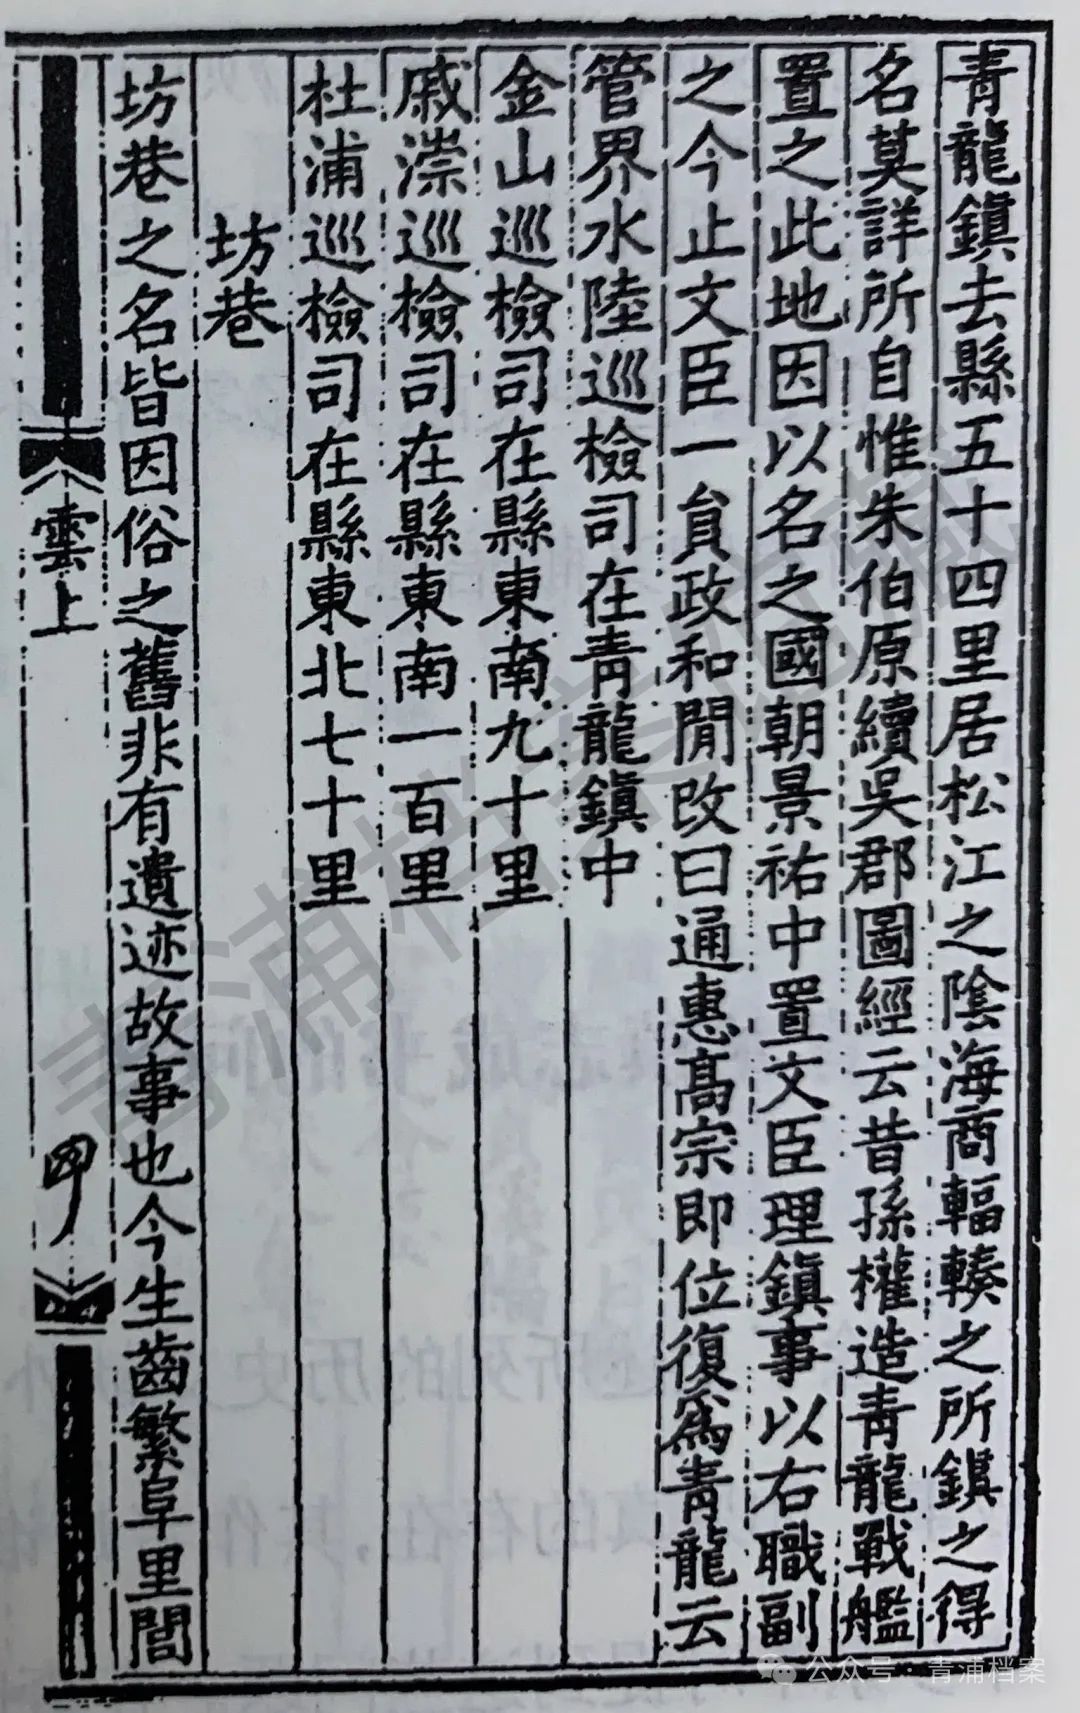 青龍鎮去縣五十四里居松江之陰海商輻輳之所鎮之得
名莫詳所自惟朱伯原續吳郡圖經云昔孫權造青龍戰艦
置之此地因以名之國朝景祐中置文臣理鎮事以右職副
之今止文臣一員政和閒改曰通惠高宗即位復為青龍云
管界水陸巡檢司在青龍鎮中
金山巡檢司在縣東南九十里
戚漴巡檢司在縣東南一百里
杜浦巡檢司在縣東北七十里
坊巷
坊巷之名皆因俗之舊非有遺迹故事也今生齒繁阜里閭
雲上
青浦档案馆藏
公众号·青浦档案